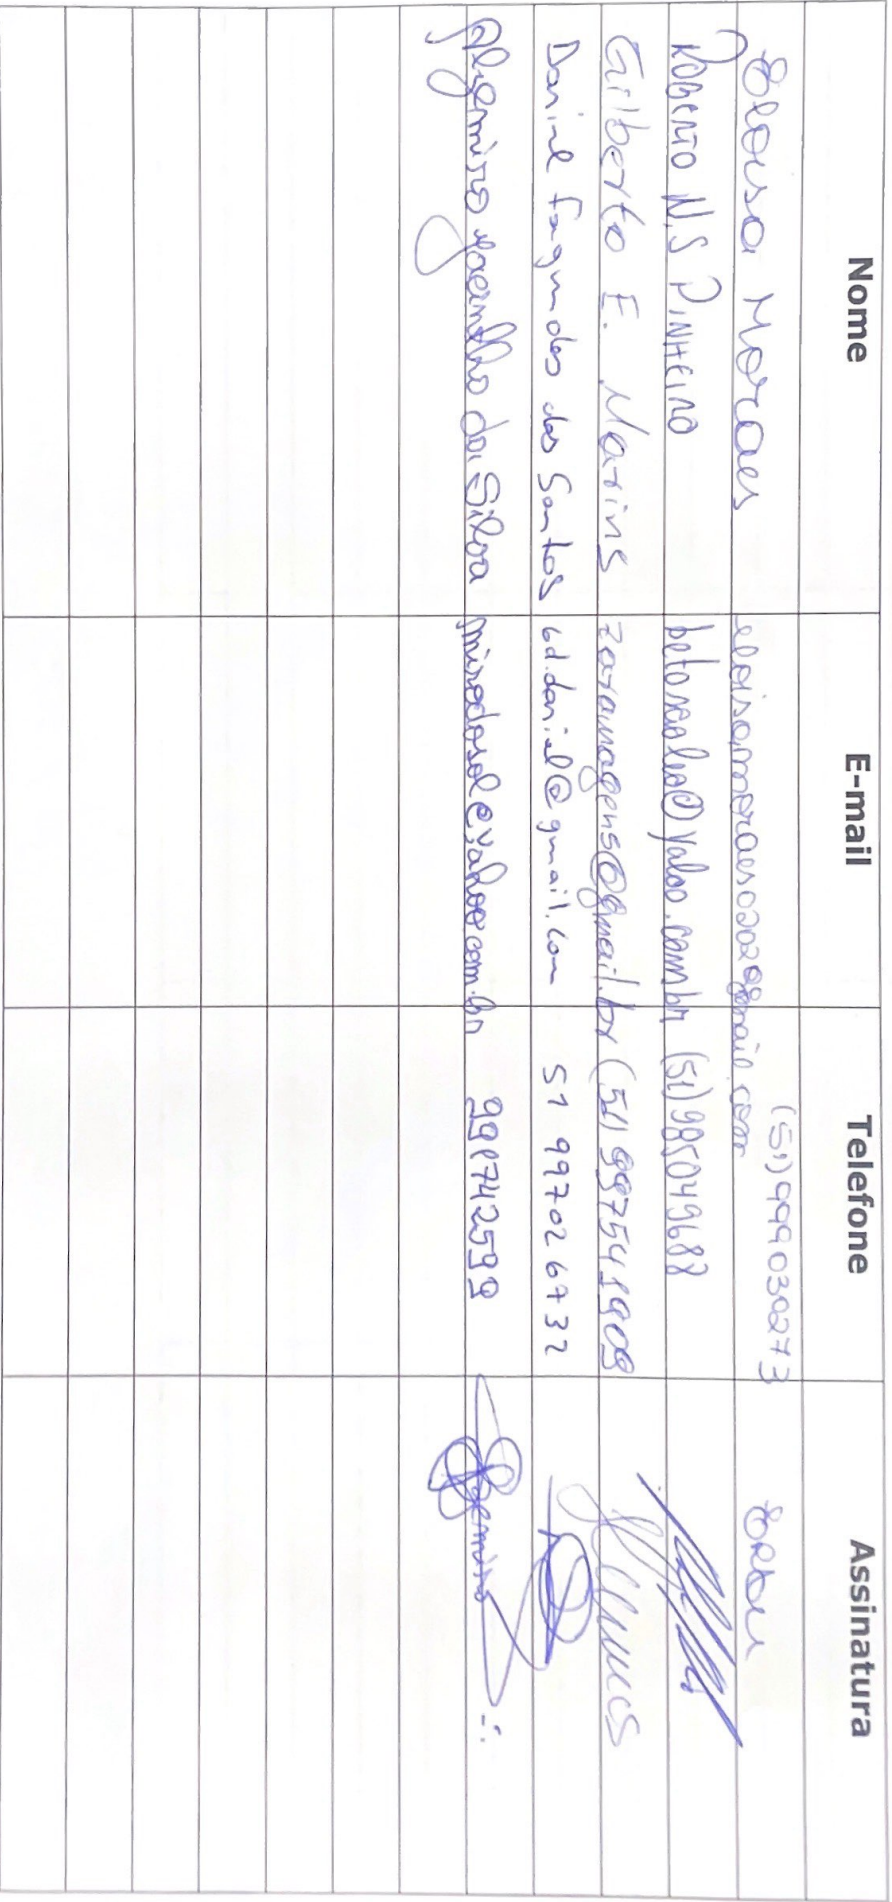 Nome E-mail Telefone Assinatura
Eloisa Moraes eloisa.moraes0202@gmail.com (51) 999030273
Roberto N.S Pinheiro (51) 985049688
Gilberto E. Marins zaramagens@gmail.br (51) 997541909
Daniel Fagundes dos Santos 6d.daniel@gmail.com 51 997026732
Argemiro da Silva mirodosol@yahoo.com.br 991742599
Argemiro